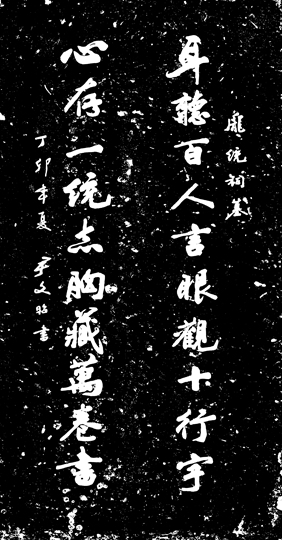 龐統祠墓
耳聽百人言眼觀十行字
心存一統志胸藏萬卷書
丁卯年夏 文昭書